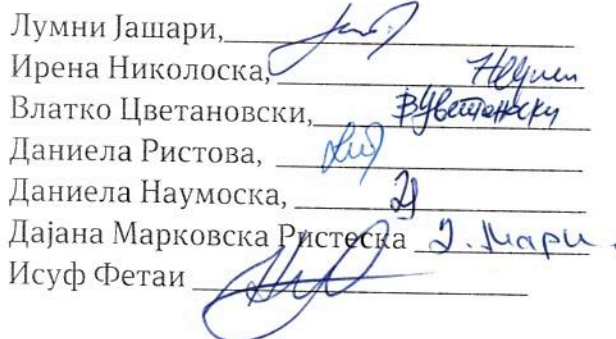 Лумни Јашари,
Ирена Николоска,
Влатко Цветановски, ВЦветановски
Даниела Ристова,
Даниела Наумоска,
Дајана Марковска Ристеска
Исуф Фетаи